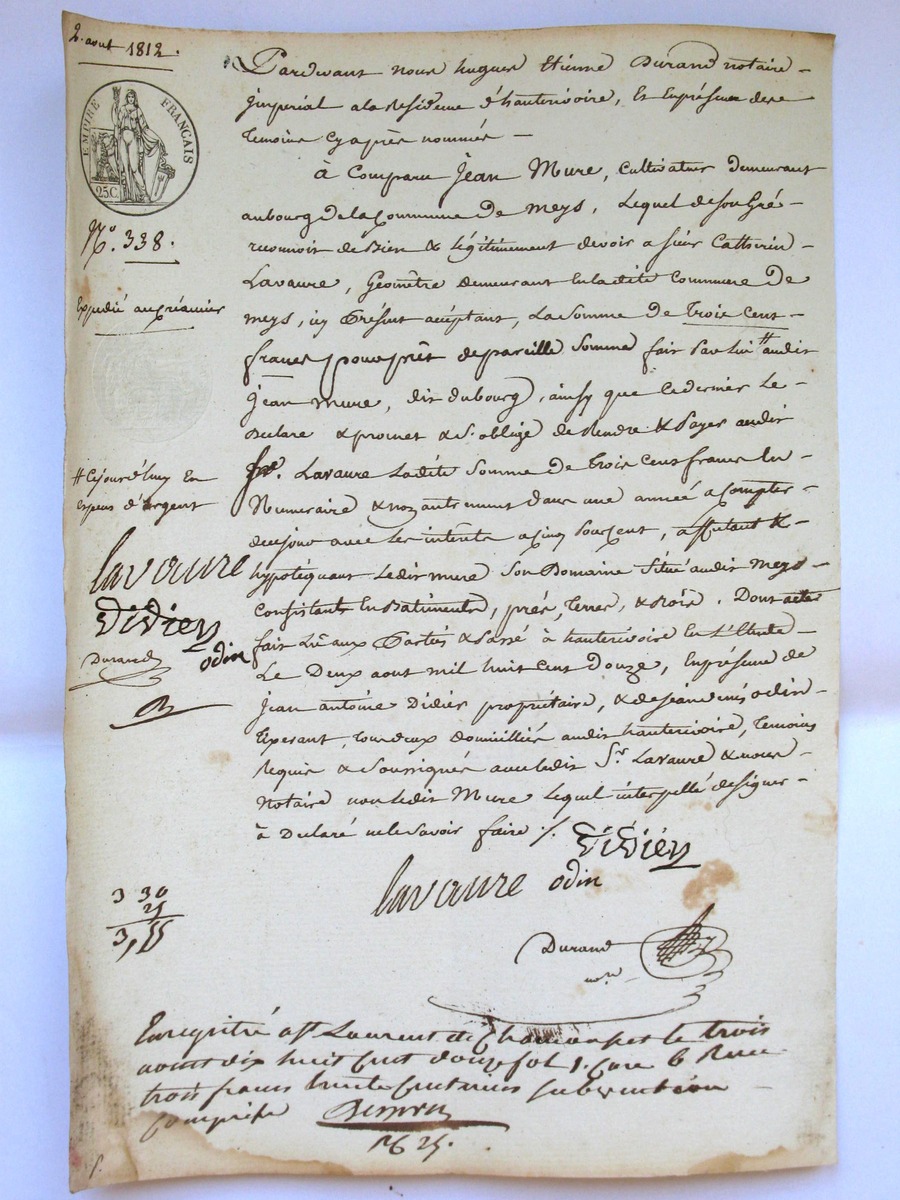 2. aout 1812.
EMPIRE FRANÇAIS
25C.
N.º 338.
Expedié au créancier
# Cejourd'huy En
Especes d'argent
lavaure
Didier
Durand odin
Pardevant nous hugues Etienne Durand notaire
jmperial a la Residence d'hauterivoire, Et Enpresence des
temoins Cy après nommés
à Comparu Jean Mure, Cultivateur demeurant
aubourg de la Commune de Meys, Lequel de son Gré
reconnoit de Bien & Légitimement devoir a sieur Catherin
Lavaure, Géomètre demeurant En la dite Commune de
meys, icy Présent acceptant, La Somme de Trois Cent
francs pour prêt de pareille Somme fait Par Lui # audit
Jean Mure, dit dubourg, ainsy que Ce dernier Le
Declare & promet & S'oblige de Rendre & Payer audit
Sr. Lavaure Ladite Somme de trois Cent francs En
Numeraire & non autrement dans une année a Compter
de ce jour avec les intérêts a cinq Pourcent, affectant &
hypotéquant Ledit mure Son Domaine Situé audit Meys
Consistant En Batiments, prés, Terres, & Bois. Dont acte
fait Lu aux Parties & Passé à hauterivoire En L'Etude
Le Deux aout mil huit Cent Douze, En présence de
Jean antoine Didier propriétaire, & de odin
Tixerant, tous deux domicilliés audit hauterivoire, Temoins
Requis & Soussignés avec Ledit Sr. Lavaure & nous
Notaire non Ledit Mure Lequel interpellé de signer
à Declaré ne le Savoir faire ./.
Didier
lavaure odin
Durand
nore
3 30
25
3,55
Enregistré a St Laurent de Chamousset le trois
aout dix huit Cent douze fol 1. Case 6 Recu
trois francs trente Centimes subvention
Comprise